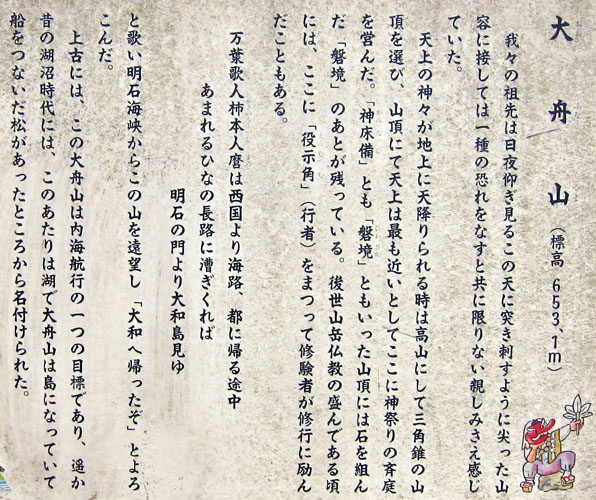 大舟山(標高 653、1m)
我々の祖先は日夜仰ぎ見るこの天に突き刺すように尖った山
容に接しては一種の恐れをなすと共に限りない親しみさえ感じ
ていた。
天上の神々が地上に天降りられる時は高山にして三角錐の山
頂を選び、山頂にて天上は最も近いとしてここに神祭りの斉庭
を営んだ。「神床備」とも「磐境」ともいった山頂には石を組ん
だ「磐境」のあとが残っている。後世山岳仏教の盛んである頃
には、ここに「役示角」(行者)をまつって修験者が修行に励ん
だこともある。
万葉歌人柿本人麿は西国より海路、都に帰る途中
あまれるひなの長路に漕ぎくれば
明石の門より大和島見ゆ
と歌い明石海峡からこの山を遠望し「大和へ帰ったぞ」とよろ
こんだ。
上古には、この大舟山は内海航行の一つの目標であり、遥か
昔の湖沼時代には、このあたりは湖で大舟山は島になっていて
船をつないだ松があったところから名付けられた。